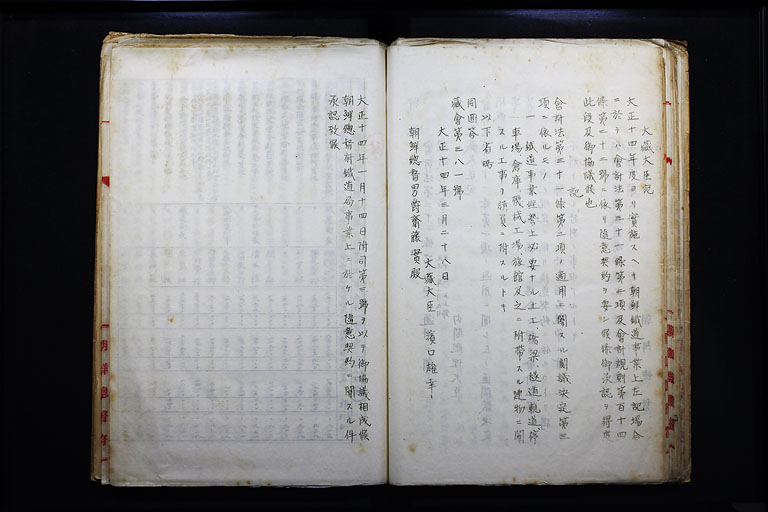 大藏大臣宛
大正十四年度ヨリ實施スヘキ朝鮮鐵道事業上左記場合
ニ於テハ會計法第三十一條第二項及會計規則第百十四
條第二十二號ニ依リ隨意契約ヲ要シ候條御承認ヲ得度
此段及御協議候也
記
會計法第三十一條第二項ノ適用ニ關スル閣議決定第三
項ニ依ルモノ
一、鐵道事業經營上必要ナル土工、橋梁、隧道、軌道、停
車場、倉庫、機械、工場、旅館及之ニ附帶スル建物ニ關
スル工事ヲ請負ニ附スルトキ
以下省略
同回答
藏會第三八一號
大正十四年三月二十八日
大藏大臣 濱口雄幸
朝鮮總督男爵齋藤實殿
大正十四年一月十四日附司第三號ヲ以テ御協議相成候
朝鮮總督府鐵道局事業上ニ於ケル隨意契約ニ關スル件
承認致候
朝鮮總督府